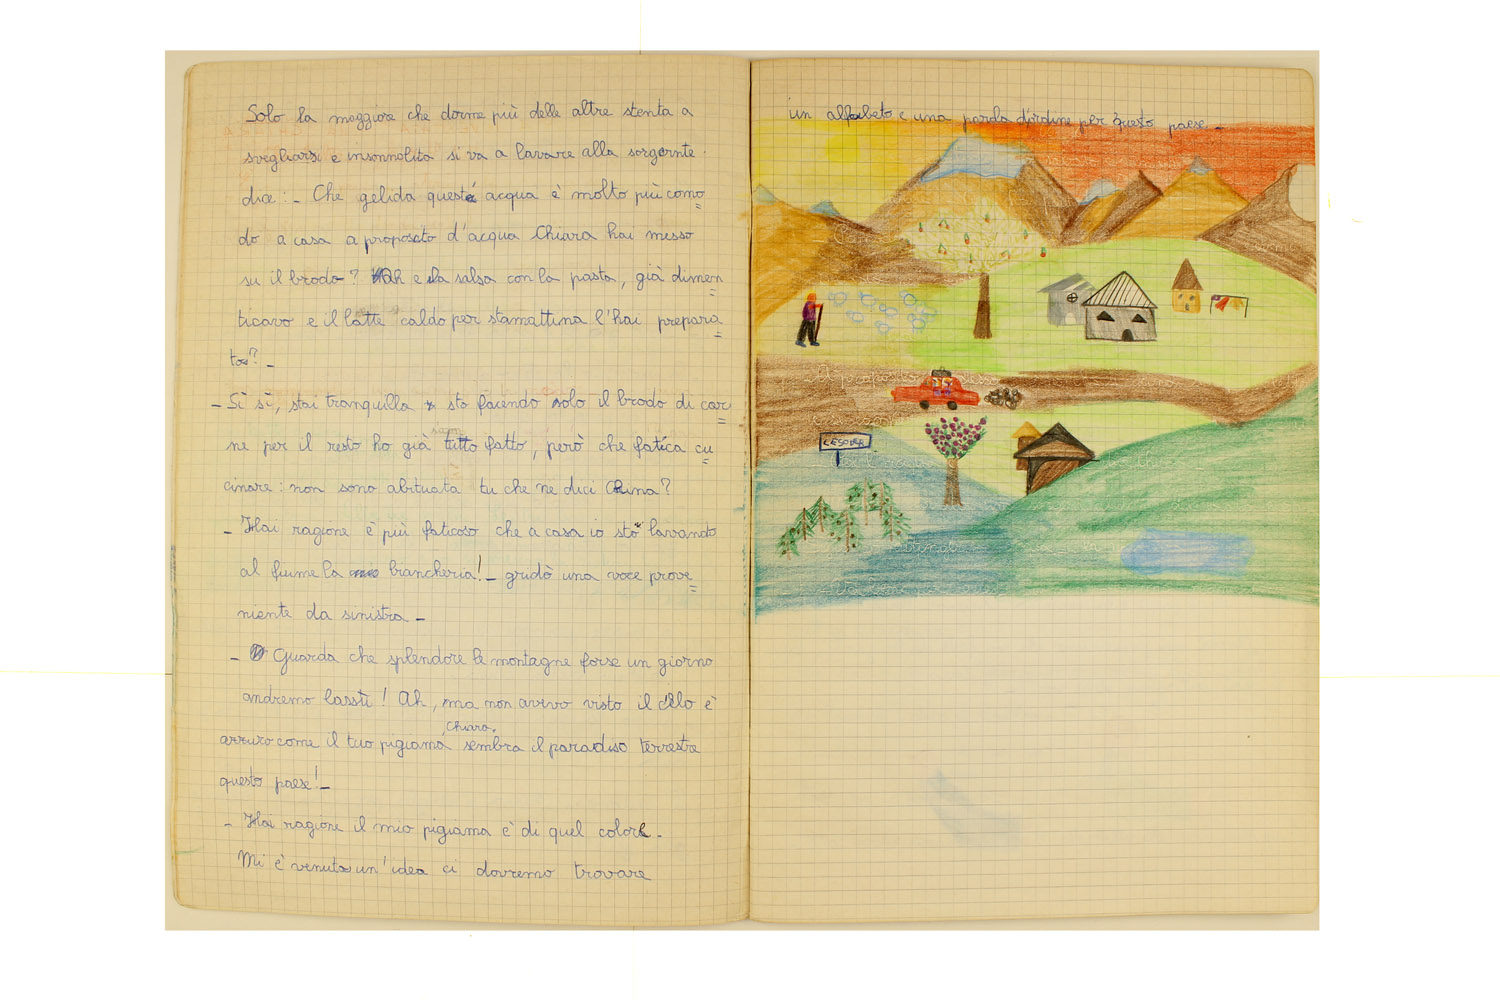 Solo la maggiore che dorme più delle altre stenta a
svegliarsi e insonnolita si va a lavare alla sorgente.
dice: - Che gelida questa acqua è molto più como
do a casa a proposito d'acqua Chiara hai messo
su il brodo? Ah e la salsa con la pasta, già dimen
ticavo e il latte caldo per stamattina l'hai prepara
to? -
- Sì sì, stai tranquilla sto facendo solo il brodo di car
ne per il resto ho già tutto fatto, però che fatica cu
cinare: non sono abituata tu che ne dici China?
- Hai ragione è più faticoso che a casa io sto lavando
al fiume la biancheria! - gridò una voce prove
niente da sinistra -
- Guarda che splendore le montagne forse un giorno
andremo lassù! Ah, ma non avevo visto il cielo è
azzuro come il tuo pigiama, Chiara, sembra il paradiso terrestre
questo paese! -
- Hai ragione il mio pigiama è di quel colore -
Mi è venuta un'idea ci dovremo trovare
un alfabeto e una parola d'ordine per questo paese -